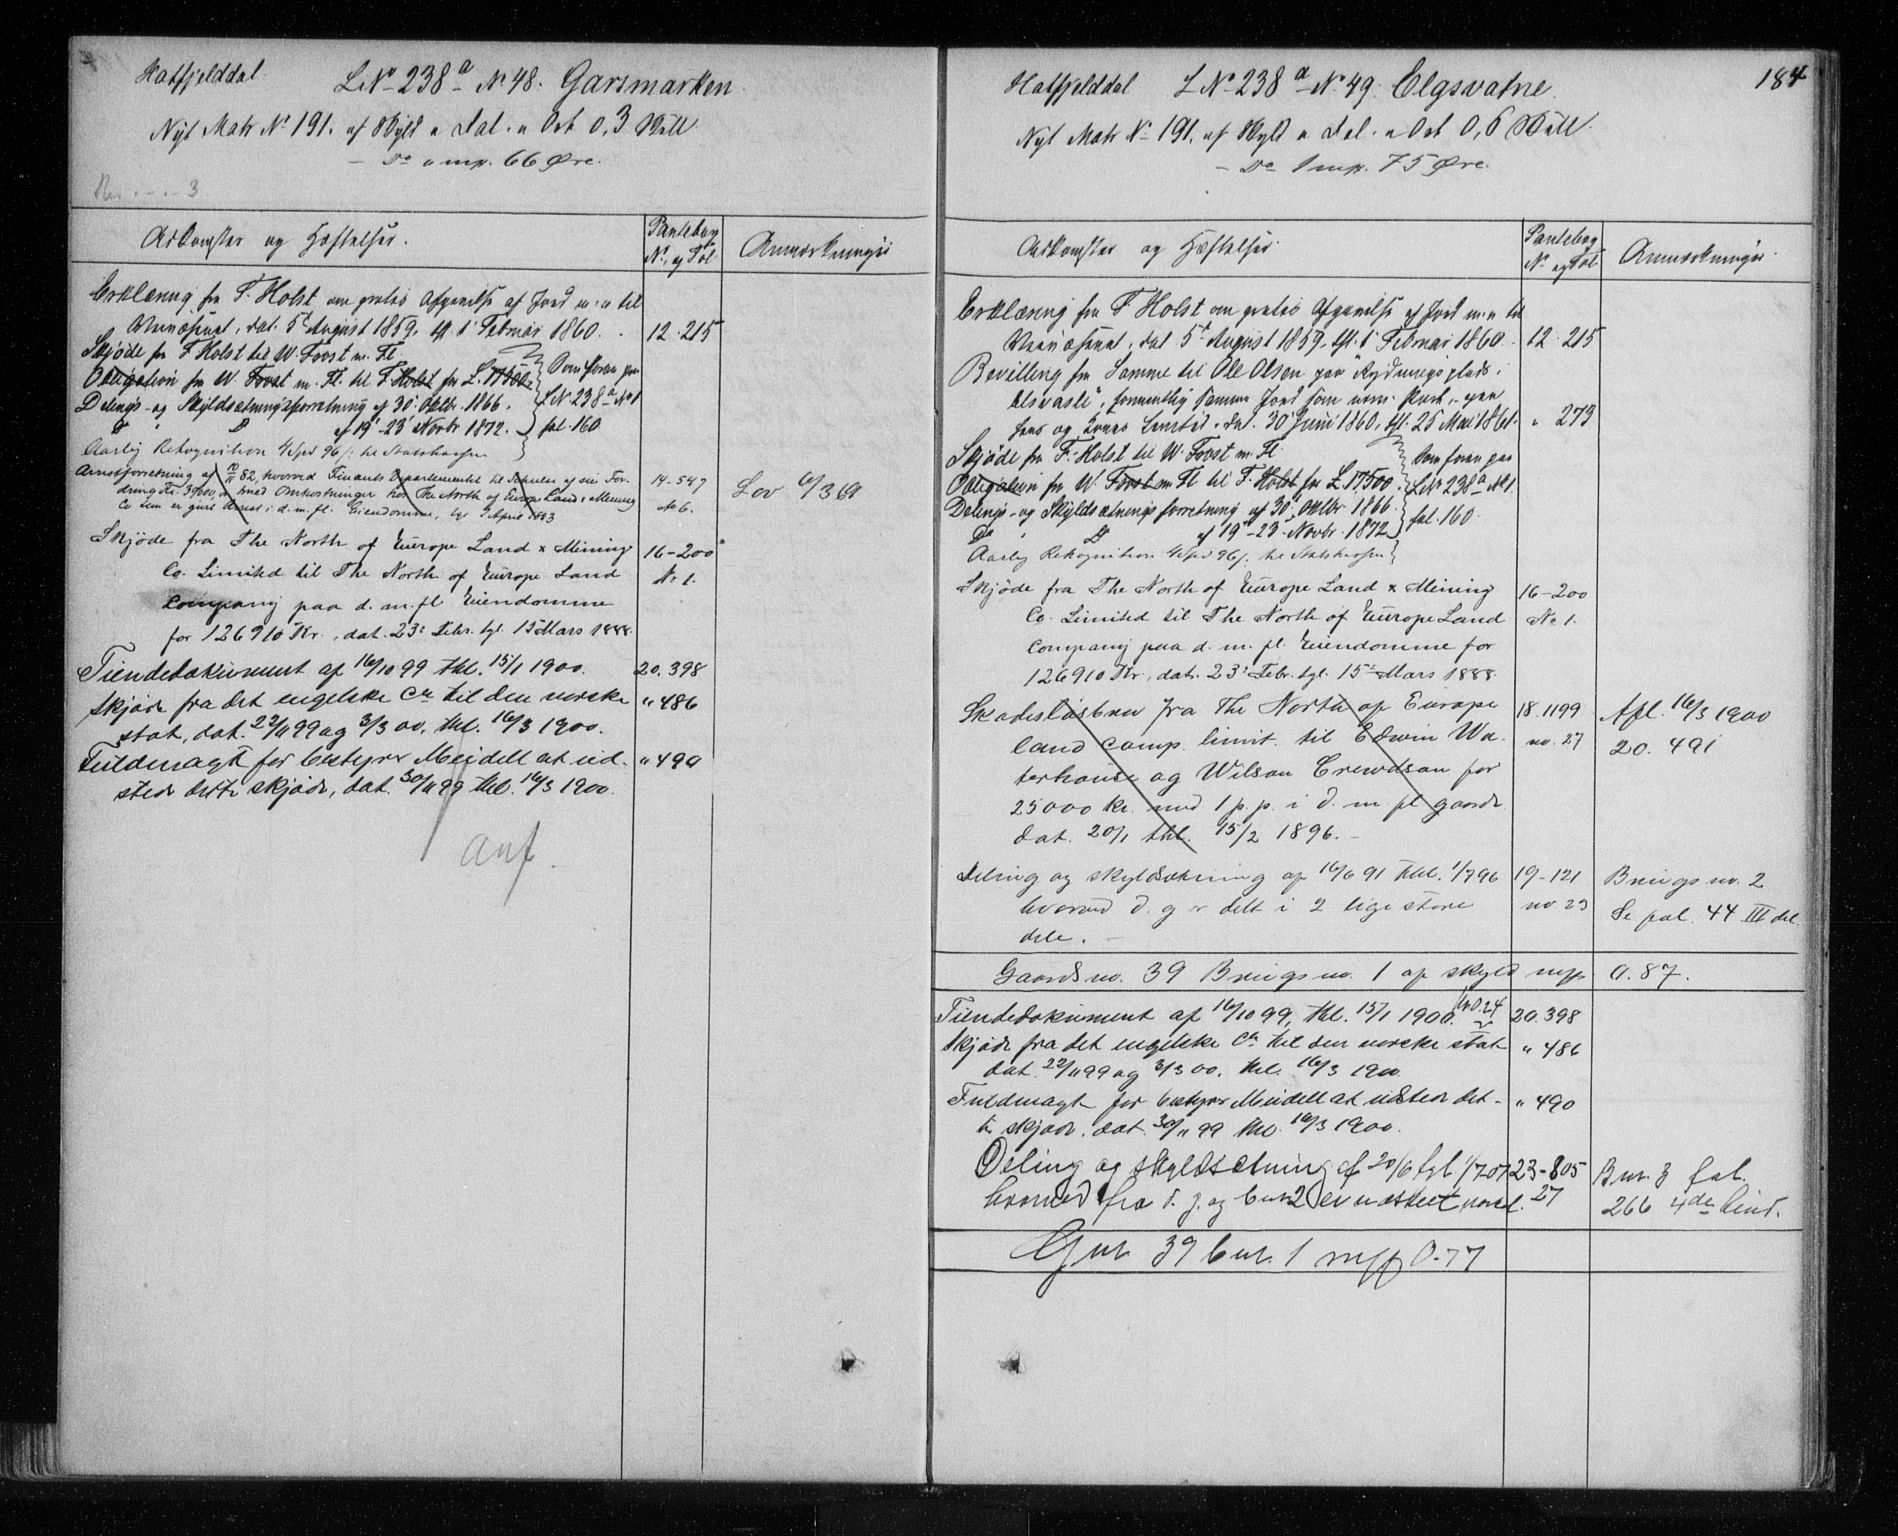 Hatfjelddal LNo 238a No 48. Garsmarken.
Nyt Matr No 191. af Skyld " Dal. " Ort 0,3 Skill
– Do " mrk. 66 Øre.
Adkomster og Hæftelser.
Pantebog No. og Fol
Anmærkninger
Erklæring fra F. Holst om gratis Afgivelse af Jord m: v til
dat. 5t August 1859. tgl. 1 Februar 1860. 12. 215
Skjøde fra F Holst til W. Foost m. Fl.
Obligation fra W. Foost m. Fl. til F Holst for L. 17500. Som foran paa
Delings- og Skyldsætningsforretning af 30 Oktbr. 1866. LNo 238a No 1
Do " D af 19-23 Novbr 1872. fol. 160
Aarlig Rekognition 4 Spd 96 s. til Statskassen
Arrestforretning af 82, hvorved Finants Departementet til af sin For-
dring Kr. med Omkostninger hos The North of Europe Land & Mining 14-547
Co Lim er gjort Arrest i d. m. fl. Eiendomme, tgl April 1883 No 6.
Lov 6/3 69
Skjøde fra The North of Europe Land & Mining 16-200
Co. Limited til The North of Europe Land No 1.
Company paa d. m. fl. Eiendomme
for 126910 Kr., dat. 23 Febr. tgl. 15 Mars 1888.
Tiendedokument af 16/10 99 thl. 15/1 1900. 20. 398
Skjøde fra det engelske Co til den norske " 486
stat, dat. 22/11 99 og 3/3 00, thl. 16/3 1900.
Fuldmagt for bestyrer Meidell at ud- " 490
stede dette skjøde, dat. 30/11 99 thl. 16/3 1900.
184
Hatfjelddal LNo 238a No 49. Elgsvatne.
Nyt Matr No 191. af Skyld " Dal. " Ort 0,6 Skill.
– Do 1 mrk. 75 Øre.
Adkomster og Hæftelser.
Pantebog No og Fol.
Anmærkninger.
Erklæring fra F. Holst om gratis Afgivelse af Jord m. v til
dat 5t August 1859. tgl. 1 Februar 1860. 12. 215
Bevilling fra Samme til Ole Olsen paa Rydningsplads.
samme Jord som paa
hans og Kones Levetid. dat. 30 Juni 1860. tgl. 25 Mai 1861. " 273
Skjøde fra F. Holst til W. Foost m. Fl
Obligation fra W. Foost m Fl til F. Holst for L 17500. Som foran paa
Delings- og Skyldsætningsforretning af 30 Oktbr. 1866. LNo 238a No 1.
Do " D af 19-23 Novbr. 1872 fol. 160.
Aarlig Rekognition 4 Spd 96 s. til Statskassen
Skjøde fra The North of Europe Land & Mining 16-200
Co. Limited til The North of Europe Land No 1.
Company paa d. m. fl. Eiendomme for
126910 Kr., dat. 23 Febr. tgl. 15 Mars 1888.
Skadesløsbrev fra The North of Europe 18. 1199 Afl. 16/3 1900
land comp. limit. til Edwin Wa- no. 27 20. 491
terhouse og Wilson Crewdson for
25000 kr. med 1 p. p. i d. m fl gaarde
dat. 20/1 thl. 15/2 1896. –
Deling og skyldsætning af 16/6 91 thl. 1/7 96 19-121 Brugs no. 2
hvorved d. g er delt i 2 lige store no. 23 Se fol. 44 III del.
dele. –
Gaards no. 39 Brugs no. 1 af skyld mrk 0.87.
Tiendedokument af 16/10 99, thl. 15/1 1900. 20. 398
Skjøde fra det engelske Co til den norske stat " 486
dat. 22/11 99 og 3/3 00, thl. 16/3 1900
Fuldmagt for bestyrer Meidell at udstede det- " 490
te skjøde, dat. 30/11 99 thl. 16/3 1900.
Deling og skyldsetning af 20/6 tgl 1/7 07 23-805 Bnr. 3 fol.
hvorved fra d. g. og bnr 2 er utskilt 27 266 4de bind.
Gnr 39 bnr. 1 mrk 0.77